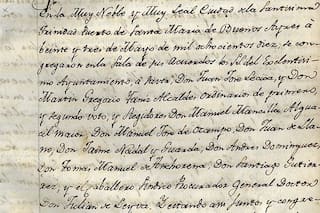 En la Muy Noble y Muy Leal Ciudad de la Santisima
Trinidad Puerto de Santa Maria de Buenos Ayres à
veinte y tres de Mayo de mil ochocientos diez, se con-
gregaron en la Sala de sus Acuerdos los SS. del Exelenti-
simo Ayuntamiento à saver, Don Juan José Lezica, y Don
Martin Gregorio Yaniz Alcaldes ordinarios de primero,
y segundo voto, y Regidores Don Manuel Mancilla Algua-
cil maior, Don Manuel José de Ocampo, Don Juan de Lla-
no, Don Jaime Nadal y Guarda, Don Andres Dominguez,
Don Tomas Manuel de Anchorena, Don Santiago Gutier-
rez, y el Caballero Sindico Procurador General Doctor
Don Julian de Leyva. Y estando asi juntos y congre-